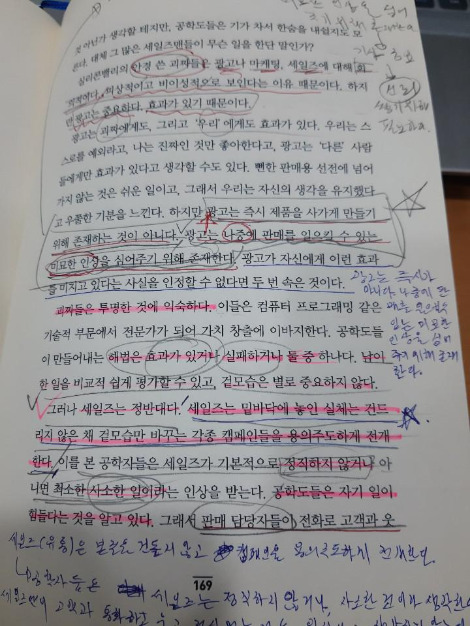 것 아닌가 생각할 테지만, 공학도들은 기가 차서 한숨을 내쉴지도 모
른다. 대체 그 많은 세일즈맨들이 무슨 일을 한단 말인가?
실리콘밸리의 안경 쓴 괴짜들은 광고나 마케팅, 세일즈에 대해 회
의적이다. 피상적이고 비이성적으로 보인다는 이유 때문이다. 하지
만 광고는 중요하다. 효과가 있기 때문이다.
광고는 괴짜에게도, 그리고 '우리'에게도 효과가 있다. 우리는 스
스로를 예외라고, 나는 진짜인 것만 좋아한다고, 광고는 '다른' 사람
들에게만 효과가 있다고 생각할 수도 있다. 뻔한 판매용 선전에 넘어
가지 않는 것은 쉬운 일이고, 그래서 우리는 자신의 생각을 유지했다
고 우쭐한 기분을 느낀다. 하지만 광고는 즉시 제품을 사가게 만들기
위해 존재하는 것이 아니다. 광고는 나중에 판매를 일으킬 수 있는
미묘한 인상을 심어주기 위해 존재한다. 광고가 자신에게 이런 효과
를 미치고 있다는 사실을 인정할 수 없다면 두 번 속은 것이다.
괴짜들은 투명한 것에 익숙하다. 이들은 컴퓨터 프로그래밍 같은
기술적 부문에서 전문가가 되어 가치 창출에 이바지한다. 공학도들
이 만들어내는 해법은 효과가 있거나 실패하거나 둘 중 하나다. 남이
한 일을 비교적 쉽게 평가할 수 있고, 겉모습은 별로 중요하지 않다.
그러나 세일즈는 정반대다. 세일즈는 밑바닥에 놓인 실체는 건드
리지 않은 채 겉모습만 바꾸는 각종 캠페인들을 용의주도하게 전개
한다. 이를 본 공학자들은 세일즈가 기본적으로 정직하지 않거나 아
니면 최소한 사소한 일이라는 인상을 받는다. 공학도들은 자기 일이
힘들다는 것을 알고 있다. 그래서 판매 담당자들이 전화로 고객과 웃
광고는 즉시가
아니라 나중에 판
매를 일으킬 수
있는 미묘한
인상을 심어
주기 위해 존재
한다.
169